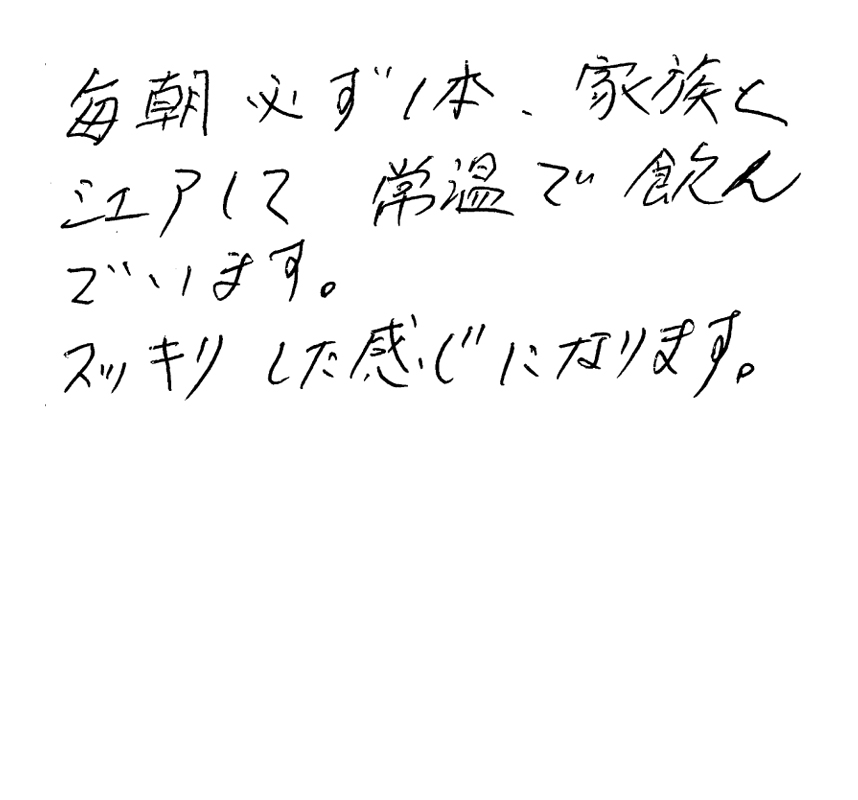 毎朝必ず1本、家族と
シェアして 常温で飲ん
でいます。
スッキリした感じになります。